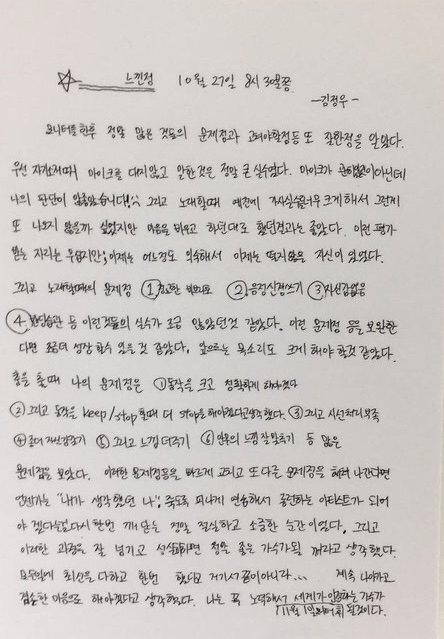 ☆ 느낀점 10월 27일 8시 30분쯤
-김정우-
모니터를 한후 정말 많은 것들의 문제점과 고쳐야할점등 또 잘한점을 알았다.
우선 자기소개때 마이크를 대지않고 말한것은 정말 큰 실수였다. 마이크가 아닌데
나의 판단이 안좋았습니다!.. 그리고 노래할때 예전에 가사실수를너무 크게해서 그런게
또 나오지 않을까 싶었지만 마음을 비우고 하던대로 했던결과는 좋았다. 이런 평가
받는 자리는 무섭지만; 이제는 어느정도 익숙해서 이제는 떨지않을 자신이 있었다.
그리고 노래할때의 문제점 ① ② 음정신경쓰기 ③ 자신감없음
④ 등 이런것들의 실수가 조금 않았던것 같았다. 이런 문제점 등을 보완한
다면 좀더 성장 할수 있을것 같았다. 앞으로는 목소리도 크게 해야 할것 같았다.
춤을 출때 나의 문제점은 ① 동작을 크고 정확하게 해야겠다
② 그리고 동작을 keep/stop 할때 더 stop을 해야겠다고생각했다. ③ 그리고 시선처리부족
④ 좀더 자신감갖기 ⑤ 그리고 느낌 더주기 ⑥ 안무의 느낌 잘맞추기 등 많은
문제점을 보았다. 이러한 문제점들을 빠르게 고치고 또다른 문제점을 해쳐 나간다면
언젠가는 "내가 생각했던 나", 죽도록 피나게 연습해서 공연하는 아티스트가 되어
야 겠다는걸다시한번 깨닫는 정말 절실하고 소중한 순간이었다. 그리고
이러한 과정을 잘 넘기고 성숙해지면 정말 좋은 가수가될 꺼라고 생각했다.
모두일에 최선을 다하고 한번 했다고 거기서끝이아니라... 계속 나아가고
겸손한 마음으로 해야겠다고 생각했다. 나는 꼭 노력해서 세계가 인정하는 가수가
11월 1일 될것이다.